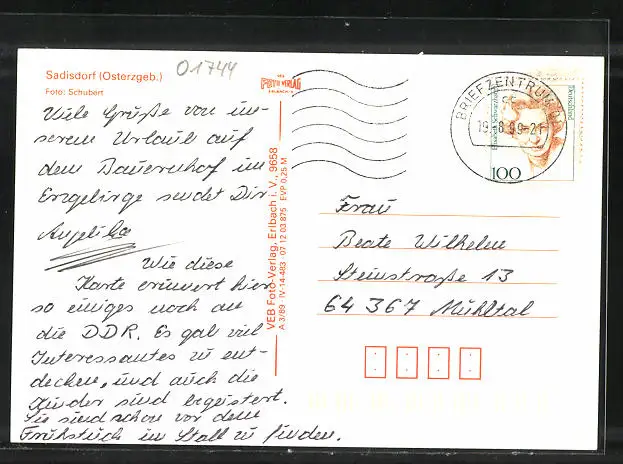 Sadisdorf (Osterzgeb.)
Foto: Schubert
01744
Viele Grüße von un-
serem Urlaub auf
dem Bauernhof im
Erzgebirge sendet Dir
Angelika
Wie diese
Karte erinnert hier
so einiges noch an
die DDR. Es gab viel
Interessantes zu ent-
decken, und auch die
Kinder sind begeistert.
Sie sind schon vor dem
Frühstück im Stall zu finden.
VEB Foto-Verlag, Erlbach i. V., 9658
A 3/89 · IV-14-483 · 07 12 03 875 EVP 0,25 M
BRIEFZENTRUM
19.8.99-21
Deutschland
100
Frau
Beate Wilhelm
Steinstraße 13
64 367 Mühltal